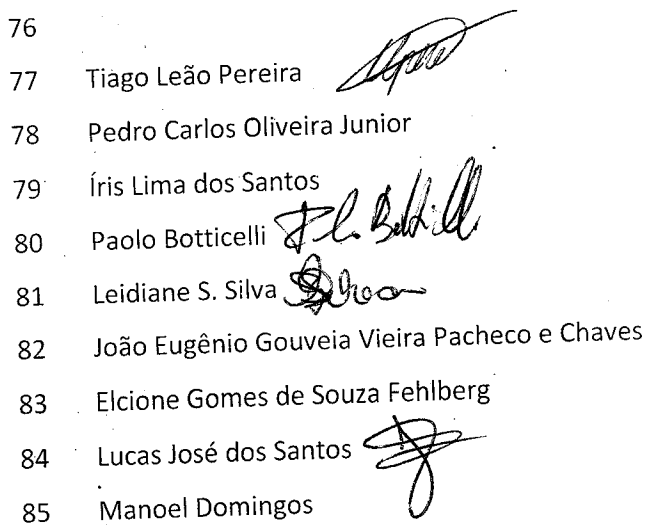 76
77 Tiago Leão Pereira
78 Pedro Carlos Oliveira Junior
79 Íris Lima dos Santos
80 Paolo Botticelli
81 Leidiane S. Silva
82 João Eugênio Gouveia Vieira Pacheco e Chaves
83 Elcione Gomes de Souza Fehlberg
84 Lucas José dos Santos
85 Manoel Domingos